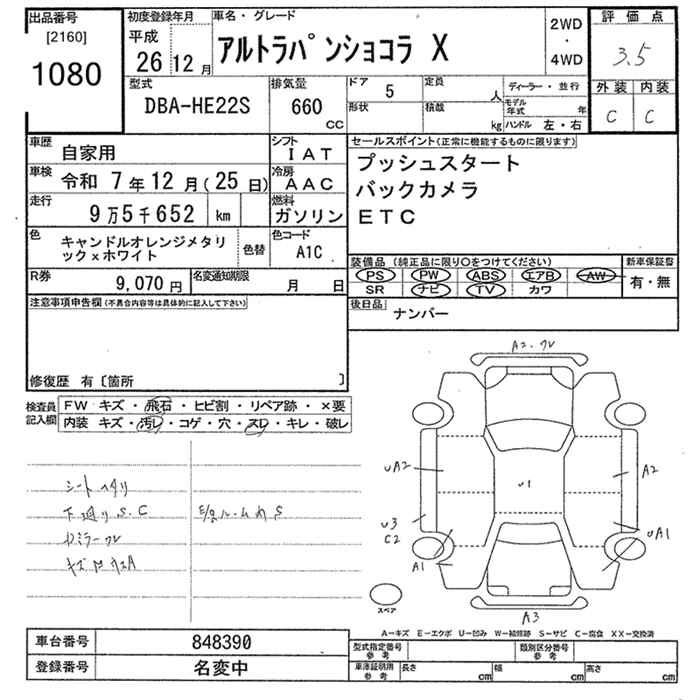 出品番号
[2160]
1080
初度登録年月
平成
26 12 月
車名・グレード
アルトラパンショコラ X
2WD
・
4WD
評価点
3.5
外装 内装
C C
型式
DBA-HE22S
排気量
660
CC
ドア 5
形状
定員 人
積載 kg
ディーラー・並行
モデル年式 年
ハンドル 左・右
車歴 自家用
シフト IAT
車検 令和 7年 12月(25日)
冷房 AAC
走行 9万5千652 km
燃料 ガソリン
色 キャンドルオレンジメタリックxホワイト
色替
色コード A1C
R券 9,070 円
名変期限 月 日
セールスポイント(正常に機能するものに限ります)
プッシュスタート
バックカメラ
ETC
装備品(純正品に限り○をつけてください)
新車保証書
PS PW ABS エアB AW
SR ナビ TV カワ
有・無
後日品
ナンバー
注意事項申告欄(不具合内容等は具体的に記入して下さい)
修復歴 有〔箇所 〕
検査員記入欄
FW キズ・飛石・ヒビ割・リペア跡・×要
内装 キズ・汚レ・コゲ・穴・スレ・キレ・破レ
シートヘタリ
下廻りS.C
キズ
A2
uA2
A2
u1
u3
C2
uA1
A1
A3
スペア
A―キズ E―エクボ U―凹み W―補修跡 S―サビ C―腐食 XX―交換済
車台番号 848390
登録番号 名変中
型式指定番号 参考
類別区分番号 参考
車庫証明用 参考
長さ cm
幅 cm
高さ cm